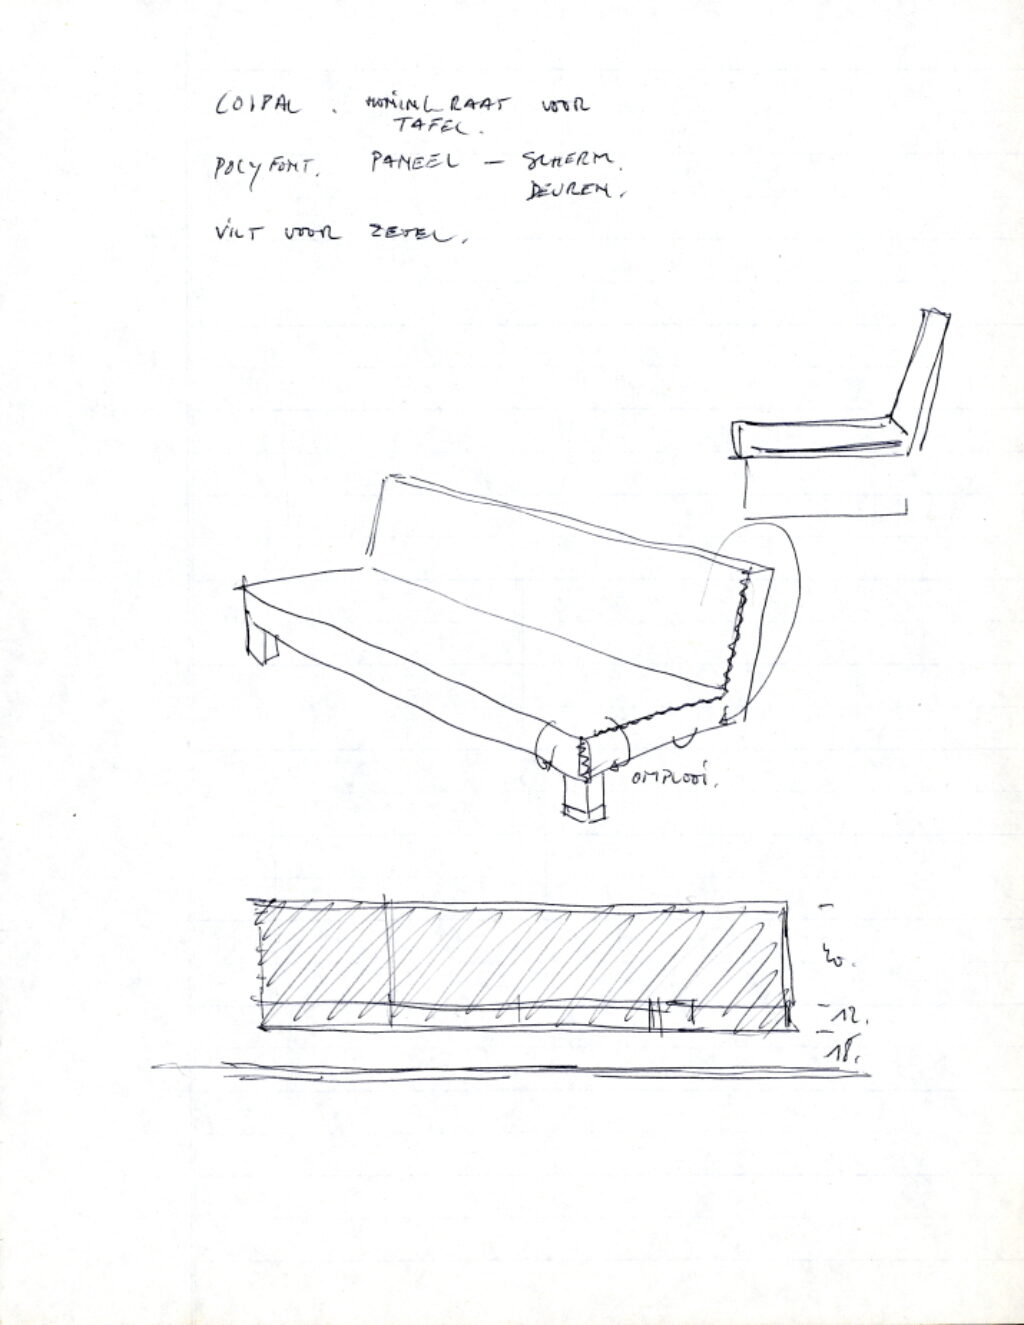 COIPAL . HONINGRAAT VOOR
TAFEL.
POLYFONT. PANEEL - SCHERM.
DEUREN.
VILT VOOR ZETEL.
OMPLOOI.
40.
12.
18.